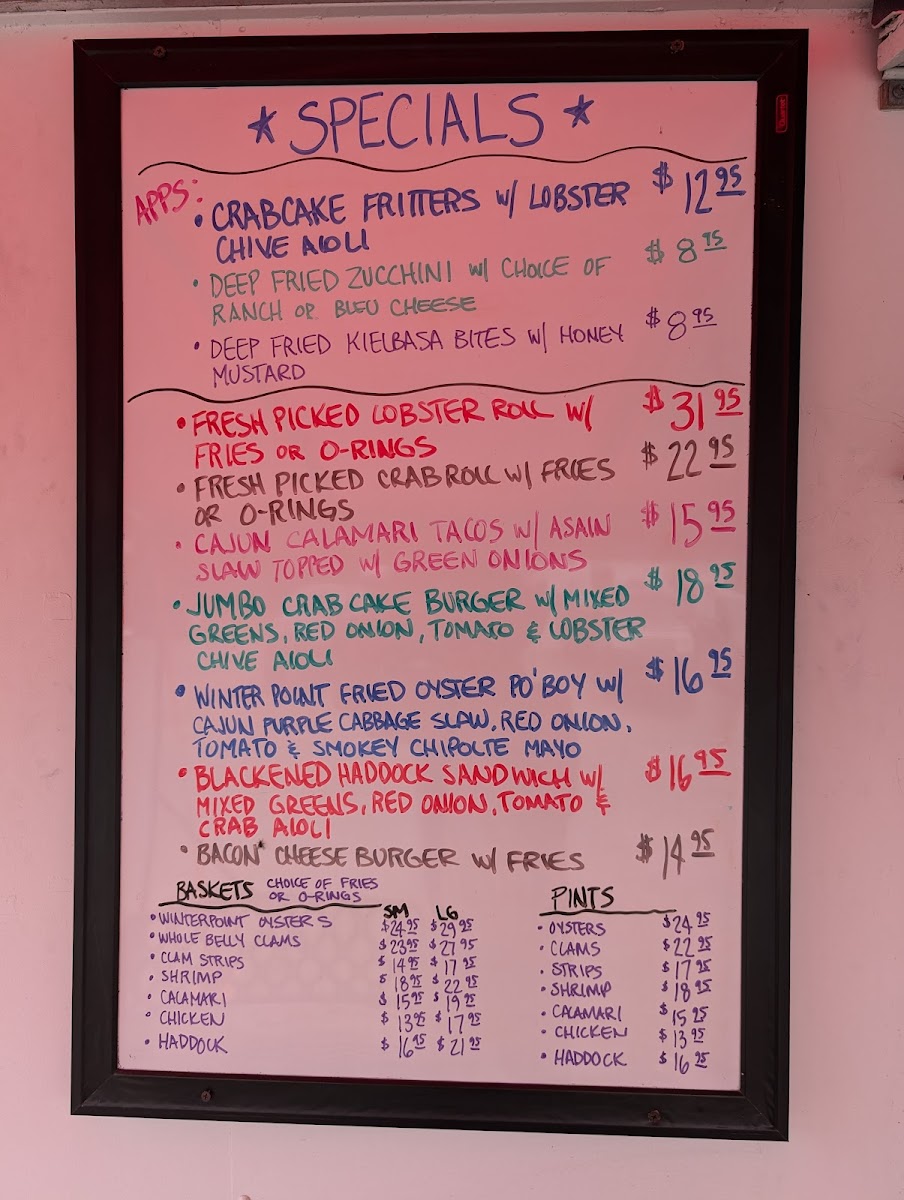 ★ SPECIALS ★
APPS:
• CRABCAKE FRITTERS W/ LOBSTER $12.95
CHIVE AIOLI
• DEEP FRIED ZUCCHINI W/ CHOICE OF $8.95
RANCH OR BLEU CHEESE
• DEEP FRIED KIELBASA BITES W/ HONEY $8.95
MUSTARD
• FRESH PICKED LOBSTER ROLL W/ $31.95
FRIES OR O-RINGS
• FRESH PICKED CRAB ROLL W/ FRIES $22.95
OR O-RINGS
• CAJUN CALAMARI TACOS W/ ASAIN $15.95
SLAW TOPPED W/ GREEN ONIONS
• JUMBO CRAB CAKE BURGER W/ MIXED $18.95
GREENS, RED ONION, TOMATO & LOBSTER
CHIVE AIOLI
• WINTER POINT FRIED OYSTER PO'BOY W/ $16.95
CAJUN PURPLE CABBAGE SLAW, RED ONION,
TOMATO & SMOKEY CHIPOLTE MAYO
• BLACKENED HADDOCK SANDWICH W/ $16.95
MIXED GREENS, RED ONION, TOMATO &
CRAB AIOLI
• BACON CHEESE BURGER W/ FRIES $14.95
BASKETS CHOICE OF FRIES
OR O-RINGS
SM LG
• WINTERPOINT OYSTERS $24.95 $29.95
• WHOLE BELLY CLAMS $23.95 $27.95
• CLAM STRIPS $14.95 $17.95
• SHRIMP $18.95 $22.95
• CALAMARI $15.95 $19.95
• CHICKEN $13.95 $17.95
• HADDOCK $16.95 $21.95
PINTS
• OYSTERS $24.95
• CLAMS $22.95
• STRIPS $17.95
• SHRIMP $18.95
• CALAMARI $15.95
• CHICKEN $13.95
• HADDOCK $16.95